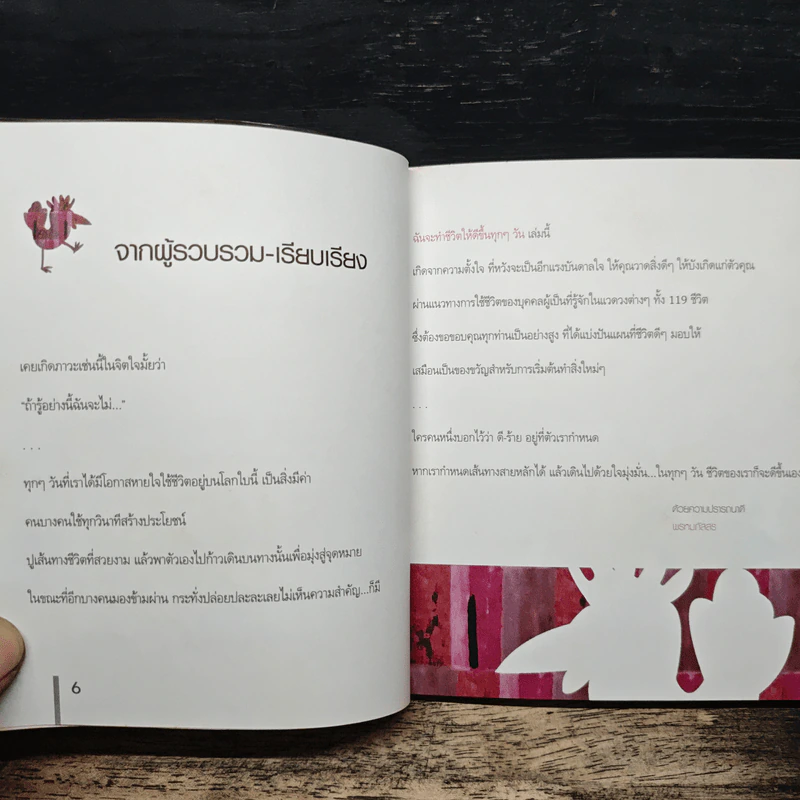 จากผู้รวบรวม-เรียบเรียง
เคยเกิดภาวะเช่นนี้ในจิตใจมั้ยว่า
"ถ้ารู้อย่างนี้ฉันจะไม่..."
...
ทุกๆ วันที่เราได้มีโอกาสหายใจใช้ชีวิตอยู่บนโลกใบนี้ เป็นสิ่งมีค่า
คนบางคนใช้ทุกวินาทีสร้างประโยชน์
ปูเส้นทางชีวิตที่สวยงาม แล้วพาตัวเองไปก้าวเดินบนทางนั้นเพื่อมุ่งสู่จุดหมาย
ในขณะที่อีกบางคนมองข้ามผ่าน กระทั่งปล่อยปละละเลยไม่เห็นความสำคัญ...ก็มี
6
ฉันจะทำชีวิตให้ดีขึ้นทุกๆ วัน เล่มนี้
เกิดจากความตั้งใจ ที่หวังจะเป็นอีกแรงบันดาลใจ ให้คุณวาดสิ่งดีๆ ให้บังเกิดแก่ตัวคุณ
ผ่านแนวทางการใช้ชีวิตของบุคคลผู้เป็นที่รู้จักในแวดวงต่างๆ ทั้ง 119 ชีวิต
ซึ่งต้องขอขอบคุณทุกท่านเป็นอย่างสูง ที่ได้แบ่งปันแผนที่ชีวิตดีๆ มอบให้
เสมือนเป็นของขวัญสำหรับการเริ่มต้นทำสิ่งใหม่ๆ
...
ใครคนหนึ่งบอกไว้ว่า ดี-ร้าย อยู่ที่ตัวเรากำหนด
หากเรากำหนดเส้นทางสายหลักได้ แล้วเดินไปด้วยใจมุ่งมั่น...ในทุกๆ วัน ชีวิตของเราก็จะดีขึ้นเอง
ด้วยความปรารถนาดี
พรหมภัสสร